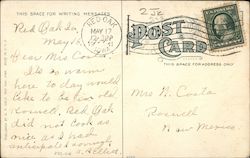 THIS SPACE FOR WRITING MESSAGES
Red Oak Ia,
May 16
Dear Mrs Costa,
Its so warm
here to day would
like to be
Red Oak
did not look as
nice as I had
anticipated
RED OAK
MAY 17
2 PM
POST CARD
THIS SPACE FOR ADDRESS ONLY
Mrs N. Costa
Roswell
New Mexico